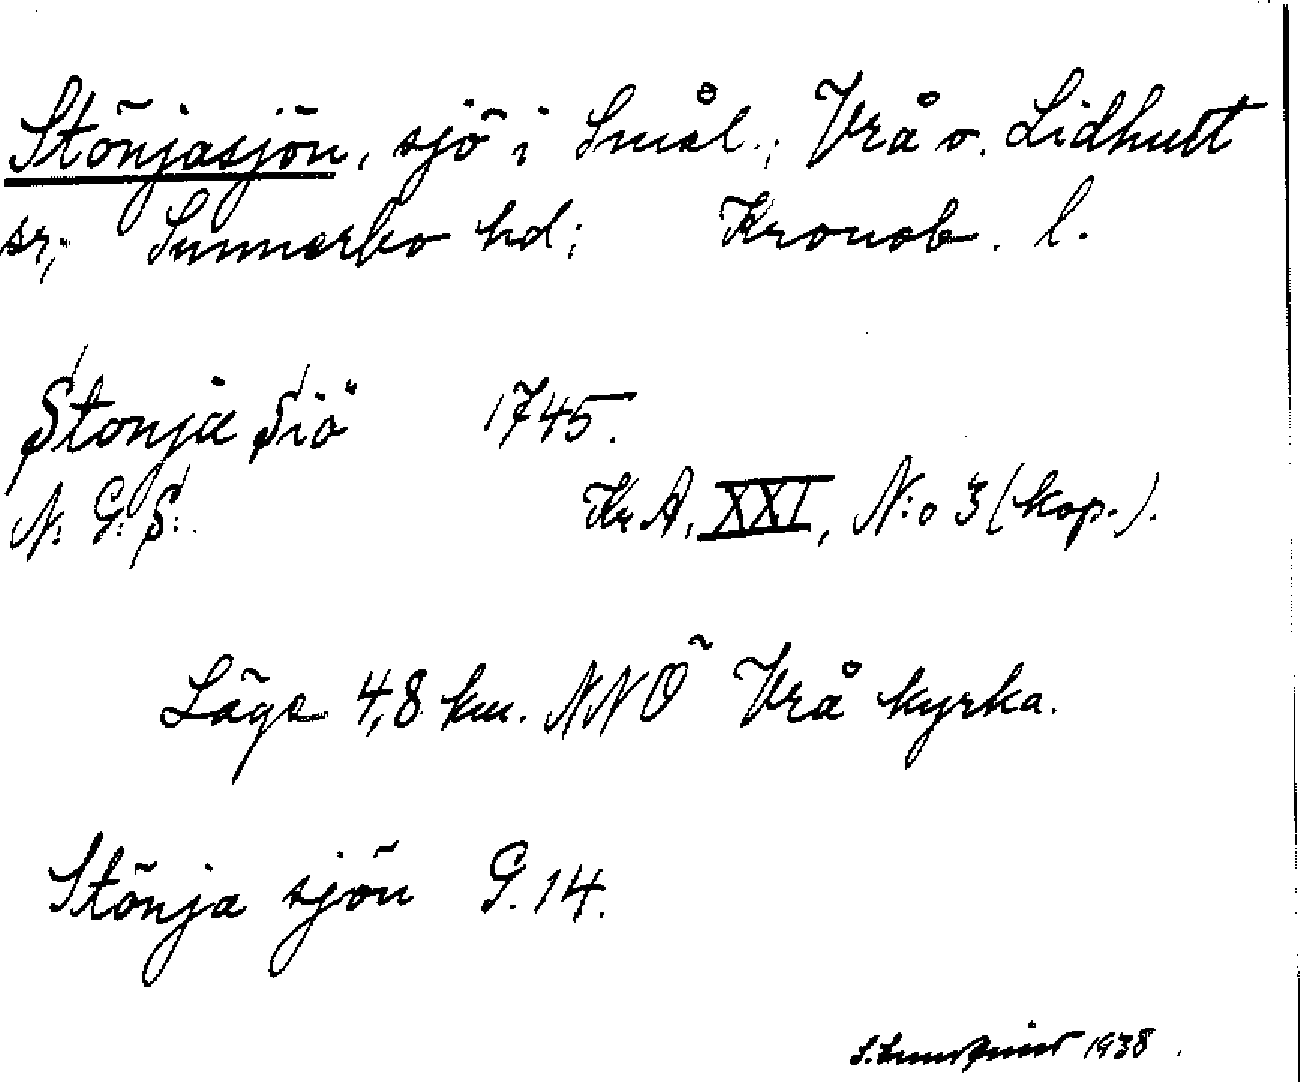 Stönjasjön, sjö i Smål.; Vrå o. Lidhult
sr; Sunnerbo hd; Kronob. l.
Stonja Siö 1745.
N. G: S:. Kr A, XXI, N:o 3 (kop.).
Läge 4,8 km. NNÖ Vrå kyrka.
Stönja sjön G. 14.
1938.